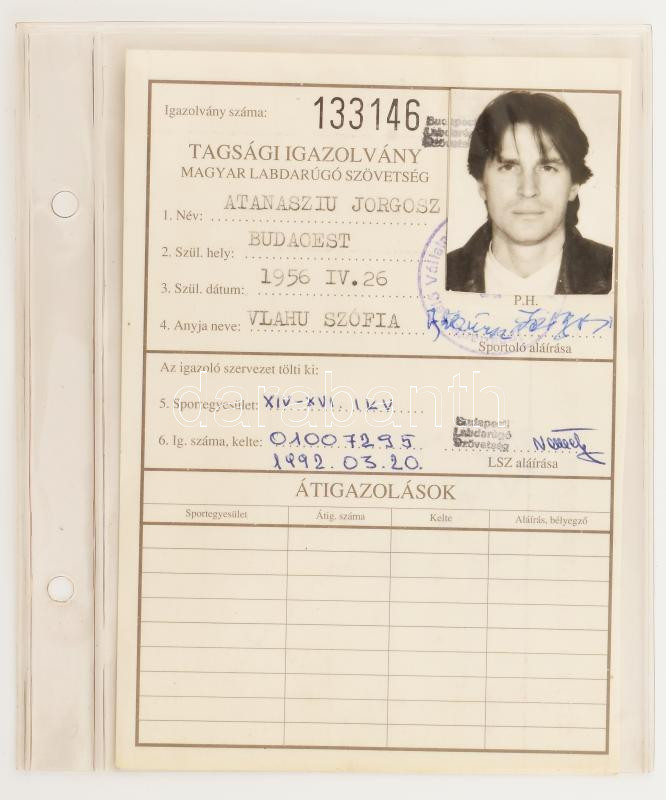 Igazolvány száma: 133146
TAGSÁGI IGAZOLVÁNY
MAGYAR LABDARÚGÓ SZÖVETSÉG
1. Név: ATANASZIU JORGOSZ
2. Szül. hely: BUDACEST
3. Szül. dátum: 1956 IV.26
4. Anyja neve: VLAHU SZÓFIA
Budapesti
Labdarúgó
Szövetség
P.H.
Sportoló aláírása
Az igazoló szervezet tölti ki:
darabanth
5. Sportegyesület: XIV-XVI. IKV
6. Ig. száma, kelte: 01007295
1992.03.20.
Budapesti
Labdarúgó
Szövetség
LSZ aláírása
ÁTIGAZOLÁSOK
Sportegyesület Átig. száma Kelte Aláírás, bélyegző